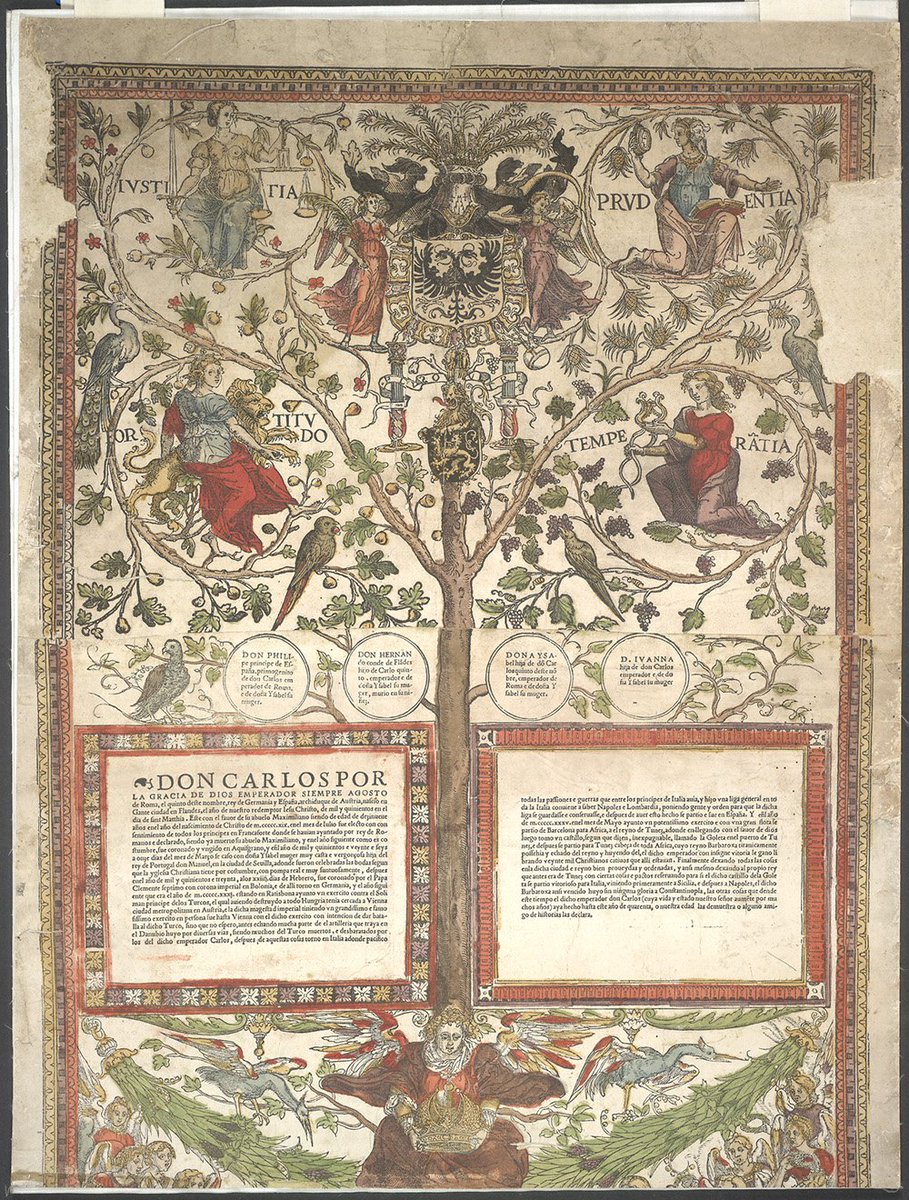 IVSTI TIA
PRVD ENTIA
OR TITV
DO
TEMPE RÃTIA
DON PHILI-
pe principe de Es-
paña, primogenito
de don Carlos em
perador de Roma,
e de doña Ysabel su
muger.
DON HERNAN
do conde de Flãdes
hijo de Carlo quin-
to, emperador e de
doña Ysabel su mu-
ger, murio en su ni-
ñez.
DONA YSA-
bel hija de dõ Car
los quinto deste nõ
bre, emperador de
Roma e de doña Y
sabel su muger.
D. IVANNA
hija de don Carlos
emperador e de do
ña Ysabel su muger
DON CARLOS POR
LA GRACIA DE DIOS EMPERADOR SIEMPRE AGOSTO
de Roma, el quinto deste nombre, rey de Germania y España, archiduque de Austria, nascio en
Gante ciudad en Flandes, el año de nuestro redemptor Iesu Christo, de mil y quinientos en el
dia de sant Matthia. Este con el fauor de su abuelo Maximiliano siendo de edad de dezinueue
años en el año del nascimiento de Christo de m.cccccxix, en el mes de Iulio fue electo con con
sentimiento de todos los principes en Francaforte donde se hauian ayuntado por rey de Ro-
manos e declarado, siendo ya muerto su abuelo Maximiliano, y en el año siguiente como es co
stumbre, fue coronado y vngido en Aquisgrano, y el año de mil y quinientos e veynte e seys
a onze dias del mes de Março se caso con doña Ysabel muger muy casta e vergonçosa hija del
rey de Portugal don Manuel, en la ciudad de Seuilla, adonde fueron celebradas las bodas segun
que la yglesia Christiana tiene por costumbre, con pompa real e muy sumtuosamente, despues
enel año de mil y quinientos e treynta, alos xxiiij. dias de Hebrero, fue coronado por el Papa
Clemente septimo con corona imperial en Bolonia, e de alli torno en Germania, y el año sigui
ente que era el año de m.cccccxxxj. estando en Ratisbona ayunto vn exercito contra el Soli
man principe delos Turcos, el qual auiendo destruydo a todo Hungria tenia cercada a Vienna
ciudad metropolitana en Austria, e la dicha magestad imperial viniendo vn grandissimo e famo
sissimo exercito en persona fue hasta Vienna con el dicho exercito con intencion de dar bata-
lla al dicho Turco, sino que no espero, antes echando mucha parte de el artilleria que traya en
el Danubio huyo por diuersas vias, siendo muchos del Turco muertos, e desbaratados por
los del dicho emperador Carlos, despues de aquestas cosas torno en Italia adonde pacifico
todas las passiones e guerras que entre los principes de Italia auia, y hizo vna liga general en to
da la Italia conuiene a saber Napoles e Lombardia, poniendo gente y orden para que la dicha
liga se guardasse e conseruasse, e despues de auer esto hecho se partio e fue en España. Y el año
de m.ccccc.xxxv. en el mes de Mayo ayunto vn potentissimo exercito e con vna gran flota se
partio de Barcelona para Africa, a el reyno de Tunez, adonde en llegando con el fauor de dios
luego tomo vn castillo, segun que dizen, inexpugnable, llamado la Goleta en el puerto de Tu
nez, e despues se partio para Tunez cabeça de toda Africa, cuyo reyno Barbarroxa tiranicamente
possehia y echado del reyno y huyendo del, el dicho emperador con insigne vitoria le gano li
brando veynte mil Christianos catiuos que alli estauan. Finalmente dexando todas las cosas
en la dicha ciudad e reyno bien proueydas y ordenadas, y ansi mesmo dexando al proprio rey
que antes era de Tunez con ciertas cosas e pactos reseruando para si el dicho castillo dela Gole
ta se partio vitorioso para Italia, viniendo primeramente a Sicilia, e despues a Napoles, el dicho
Barbarroxa ansi vencido huyo sin ninguna gloria a Constantinopla, las otras cosas que desde
este tiempo el dicho emperador don Carlos (cuya vida y estado nuestro señor aumẽte por mu
chos años) aya hecho hasta este año de quarenta, o nuestra edad las demuestra o algun ami-
go de historias las declara.